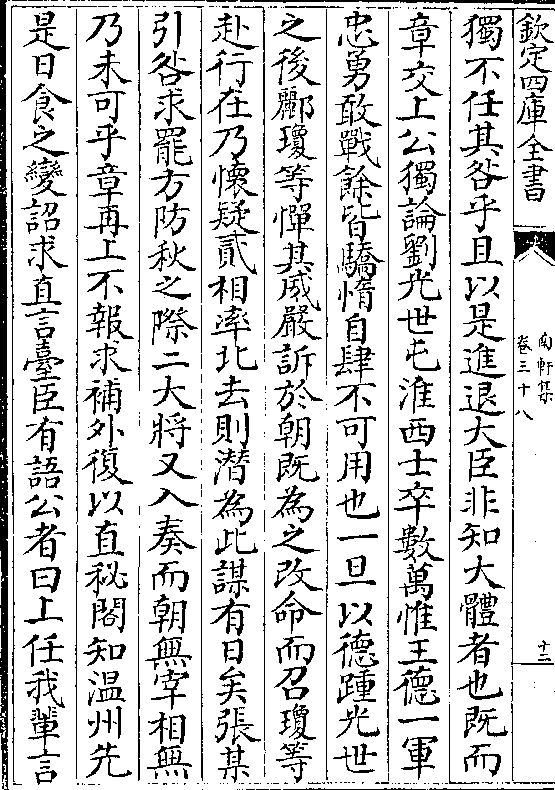 欽定四庫全書
南軒集
卷三十八
十二
獨不任其咎乎且以是進退大臣非知大體者也既而
章交上公獨論劉光世屯淮西士卒數萬惟王德一軍
忠勇敢戰餘皆驕惰自肆不可用也一旦以德踵光世
之後酈瓊等憚其威嚴訴於朝既為之改命而召瓊等
赴行在乃懷疑貳相率北去則潛為此謀有日矣張某
引咎求罷方防秋之際二大將又入奏而朝無宰相無
乃未可乎章再上不報求補外復以直秘閣知温州先
是日食之變詔求直言臺臣有語公者曰上任我輩言